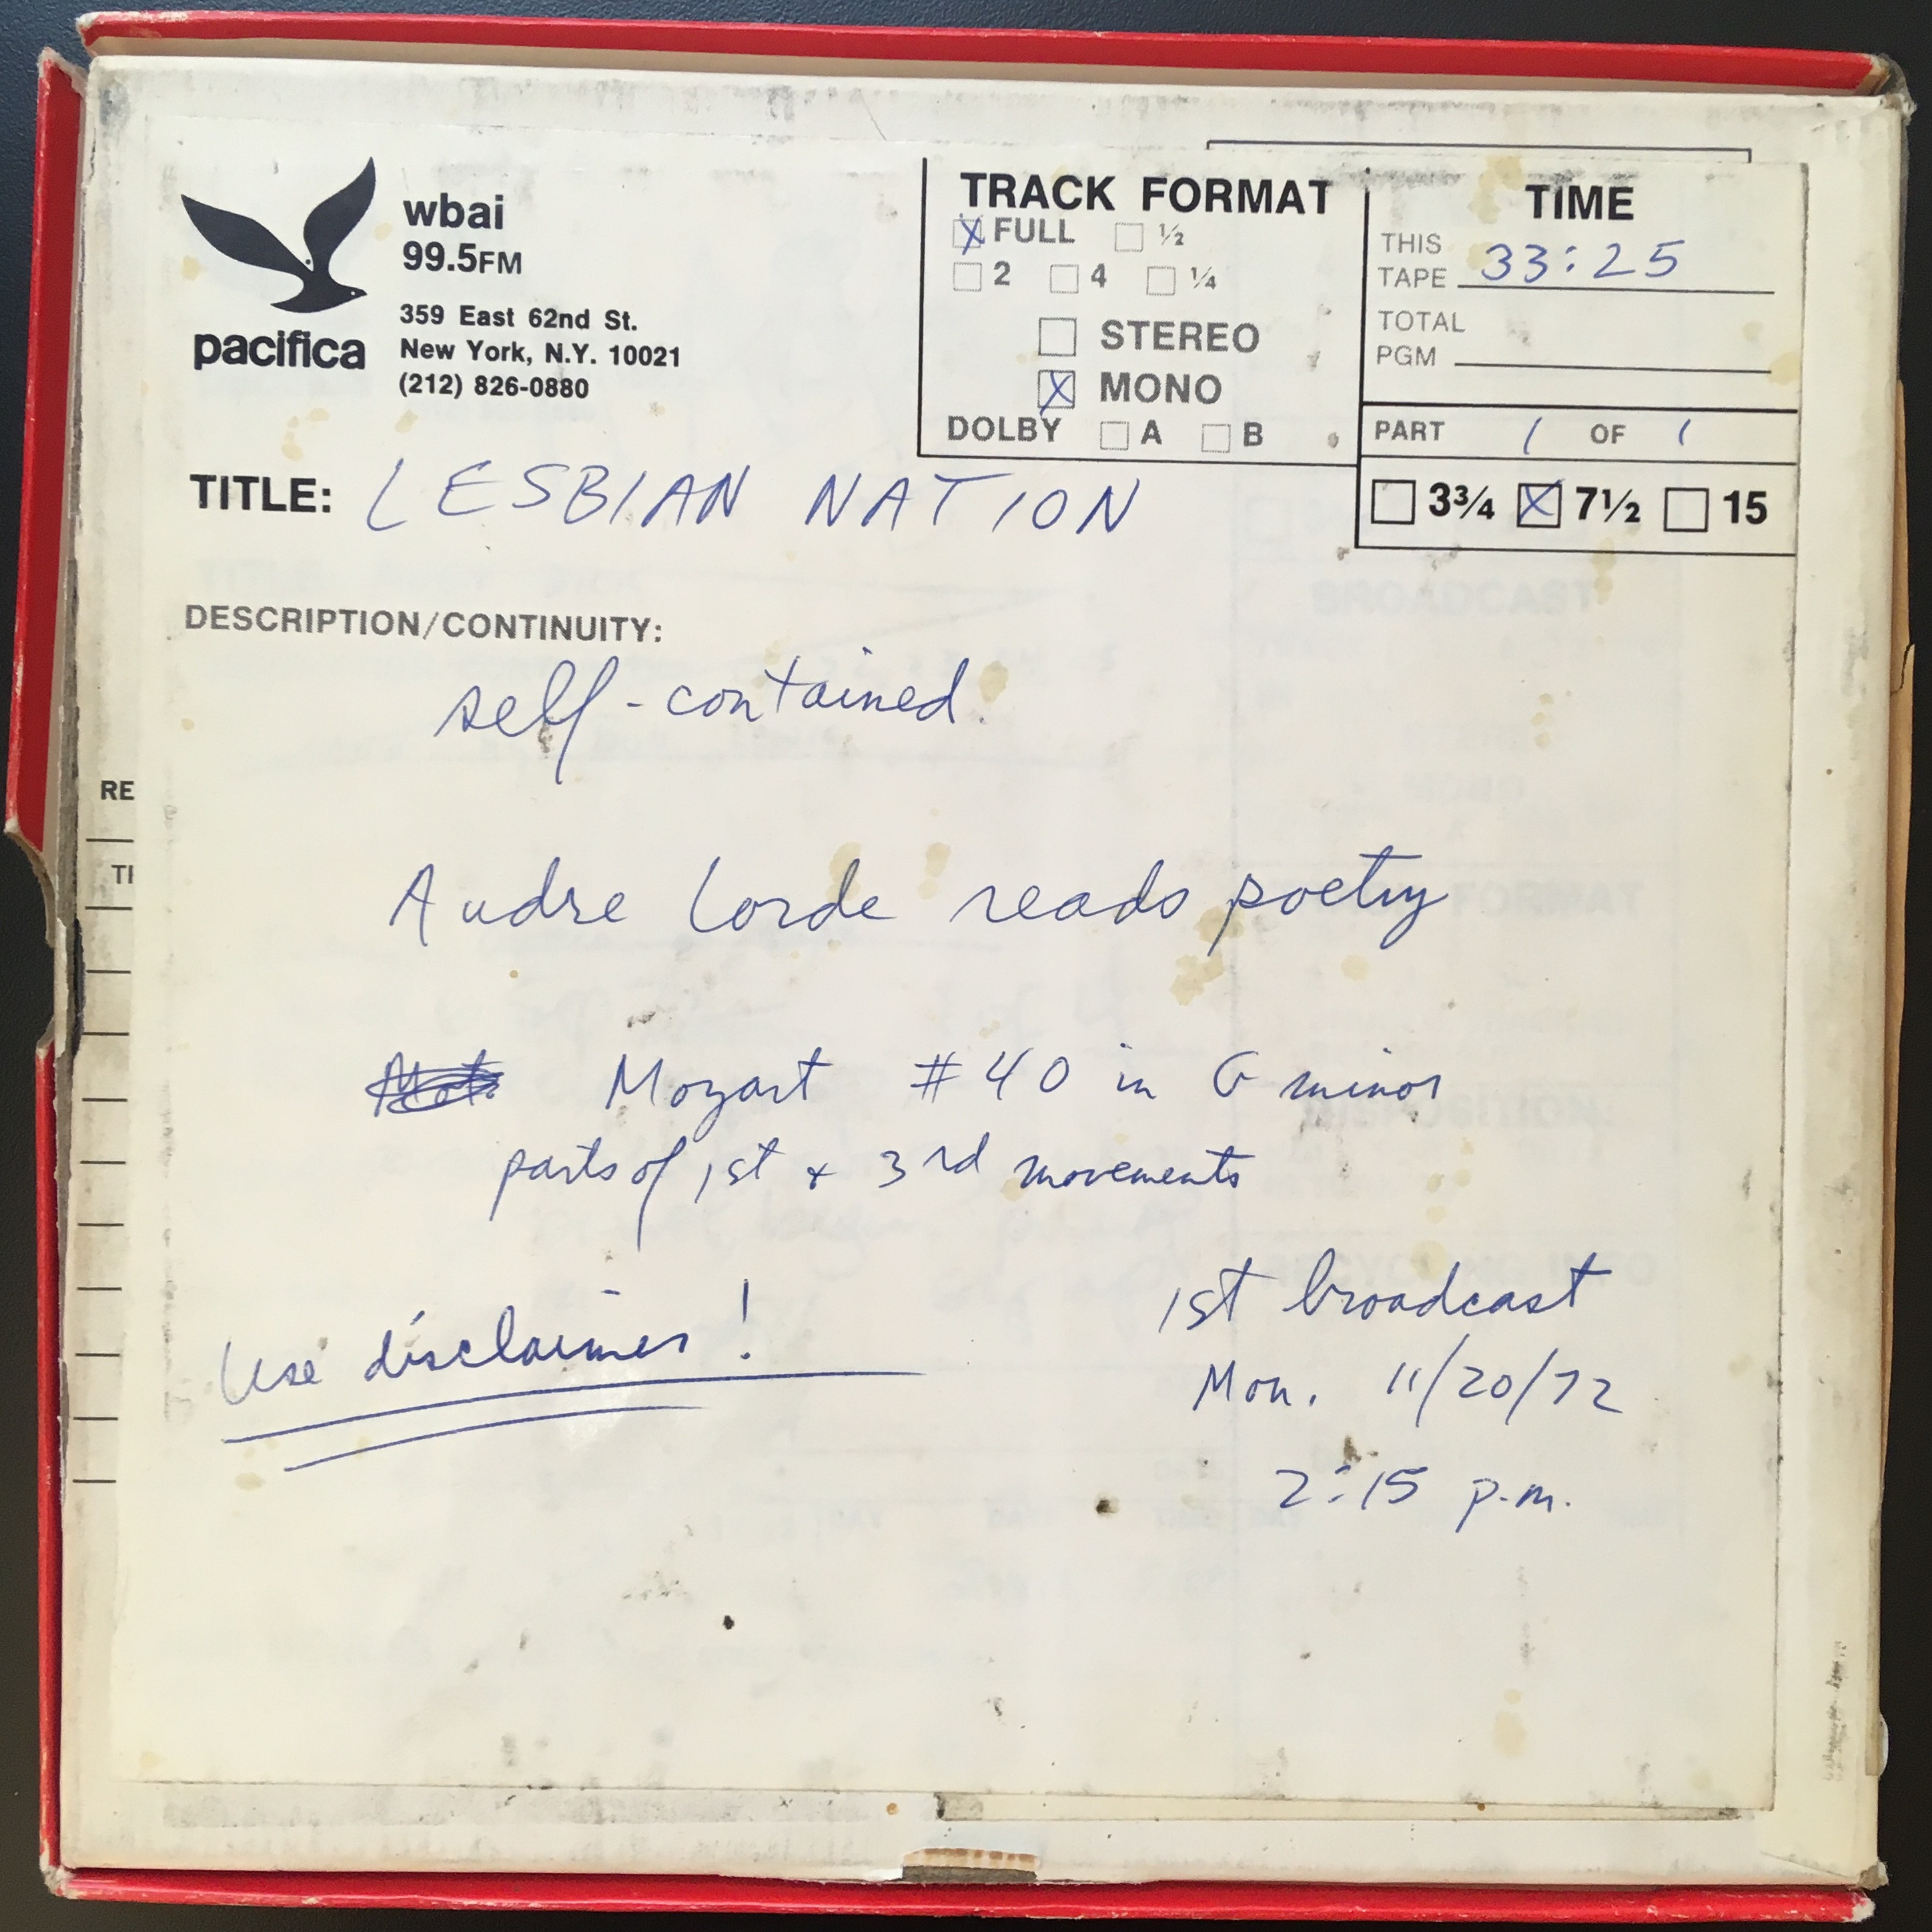 wbai
99.5FM
359 East 62nd St.
New York, N.Y. 10021
(212) 826-0880
pacifica
TRACK FORMAT
X FULL ½
2 4 ¼
STEREO
X MONO
DOLBY A B
TIME
THIS
TAPE 33:25
TOTAL
PGM
PART 1 OF 1
3¾ X 7½ 15
TITLE: LESBIAN NATION
DESCRIPTION/CONTINUITY:
self-contained
RE
TI
Audre Lorde reads poetry
Mozart #40 in G minor
parts of 1st + 3rd movements
Use disclaimer!
1st broadcast
Mon. 11/20/72
2:15 p.m.